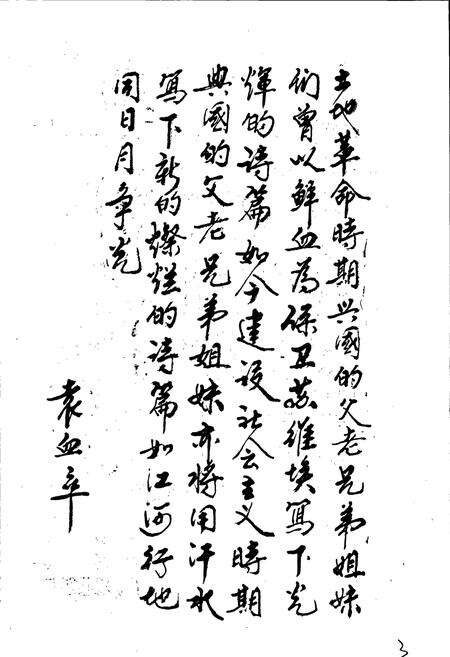 土地革命時期兴國的父老兄弟姐妹
们曾以鲜血为保卫苏维埃写下光
辉的詩篇如今建设社会主义時期
兴國的父老兄弟姐妹亦将用汗水
写下新的燦烂的詩篇如江河行地
同日月争光
袁血卒
3